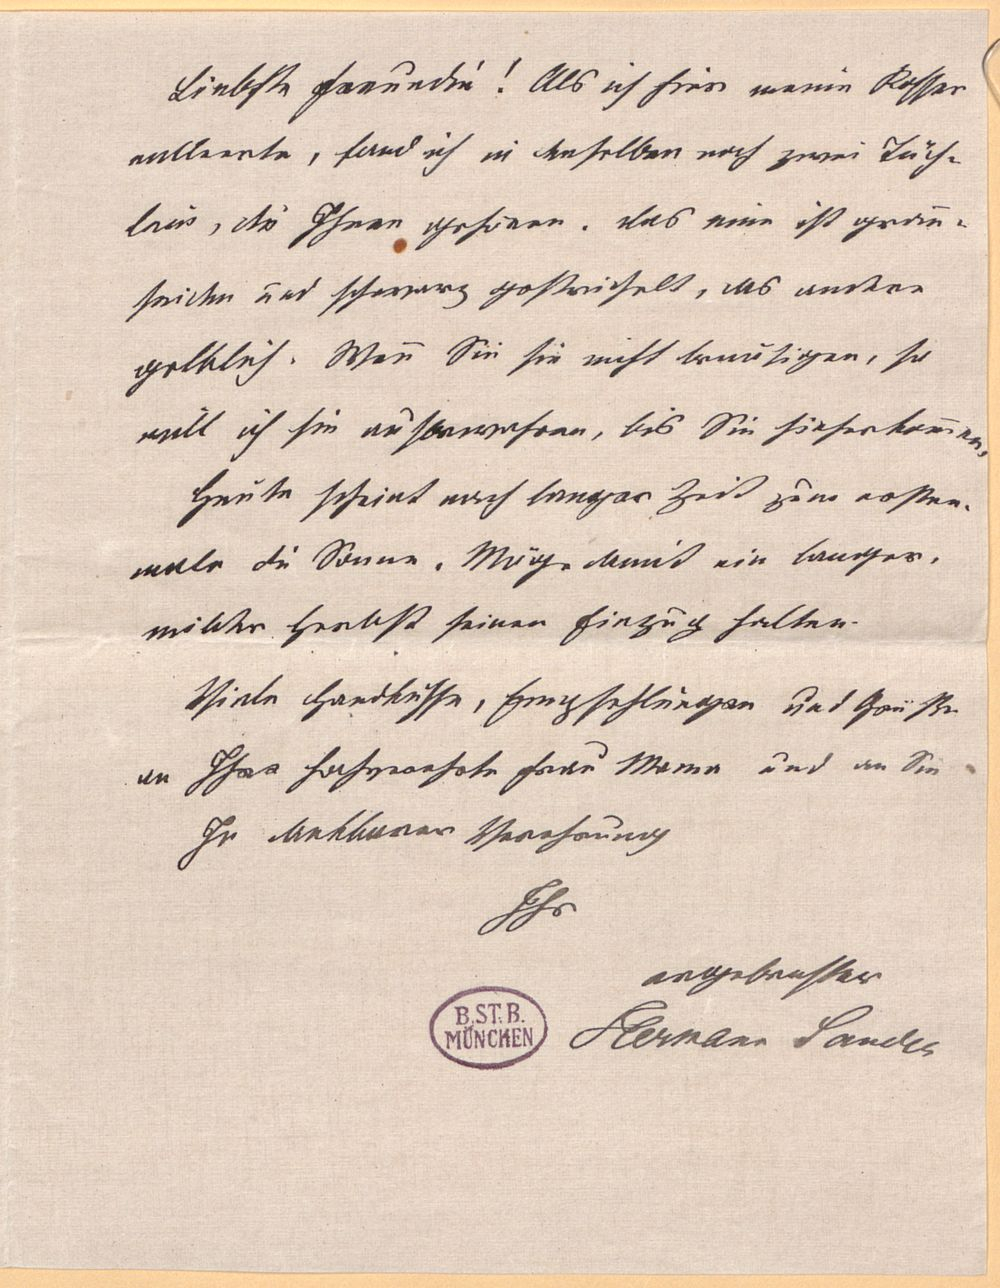 Liebste Freundin! Als ich hier meine Koffer
entleerte, fand ich in denselben noch zwei Tüch-
lein, die Ihnen gehören. Das eine ist grau-
seiden und schwarz gestrichelt, das andere
gelblich. Wenn Sie sie nicht benötigen, so
will ich sie aufbewahren, bis Sie hieherkommen.
Heute scheint nach langer Zeit zum ersten-
male die Sonne. Möge damit ein langer,
milder Herbst seinen Einzug halten.
Viele Handküsse, Empfehlungen und Grüße
an Ihre hochverehrte Frau Mama und an Sie
In dankbarer Verehrung
Ihr
ergebenster
Hermann
B.ST.B.
MÜNCHEN